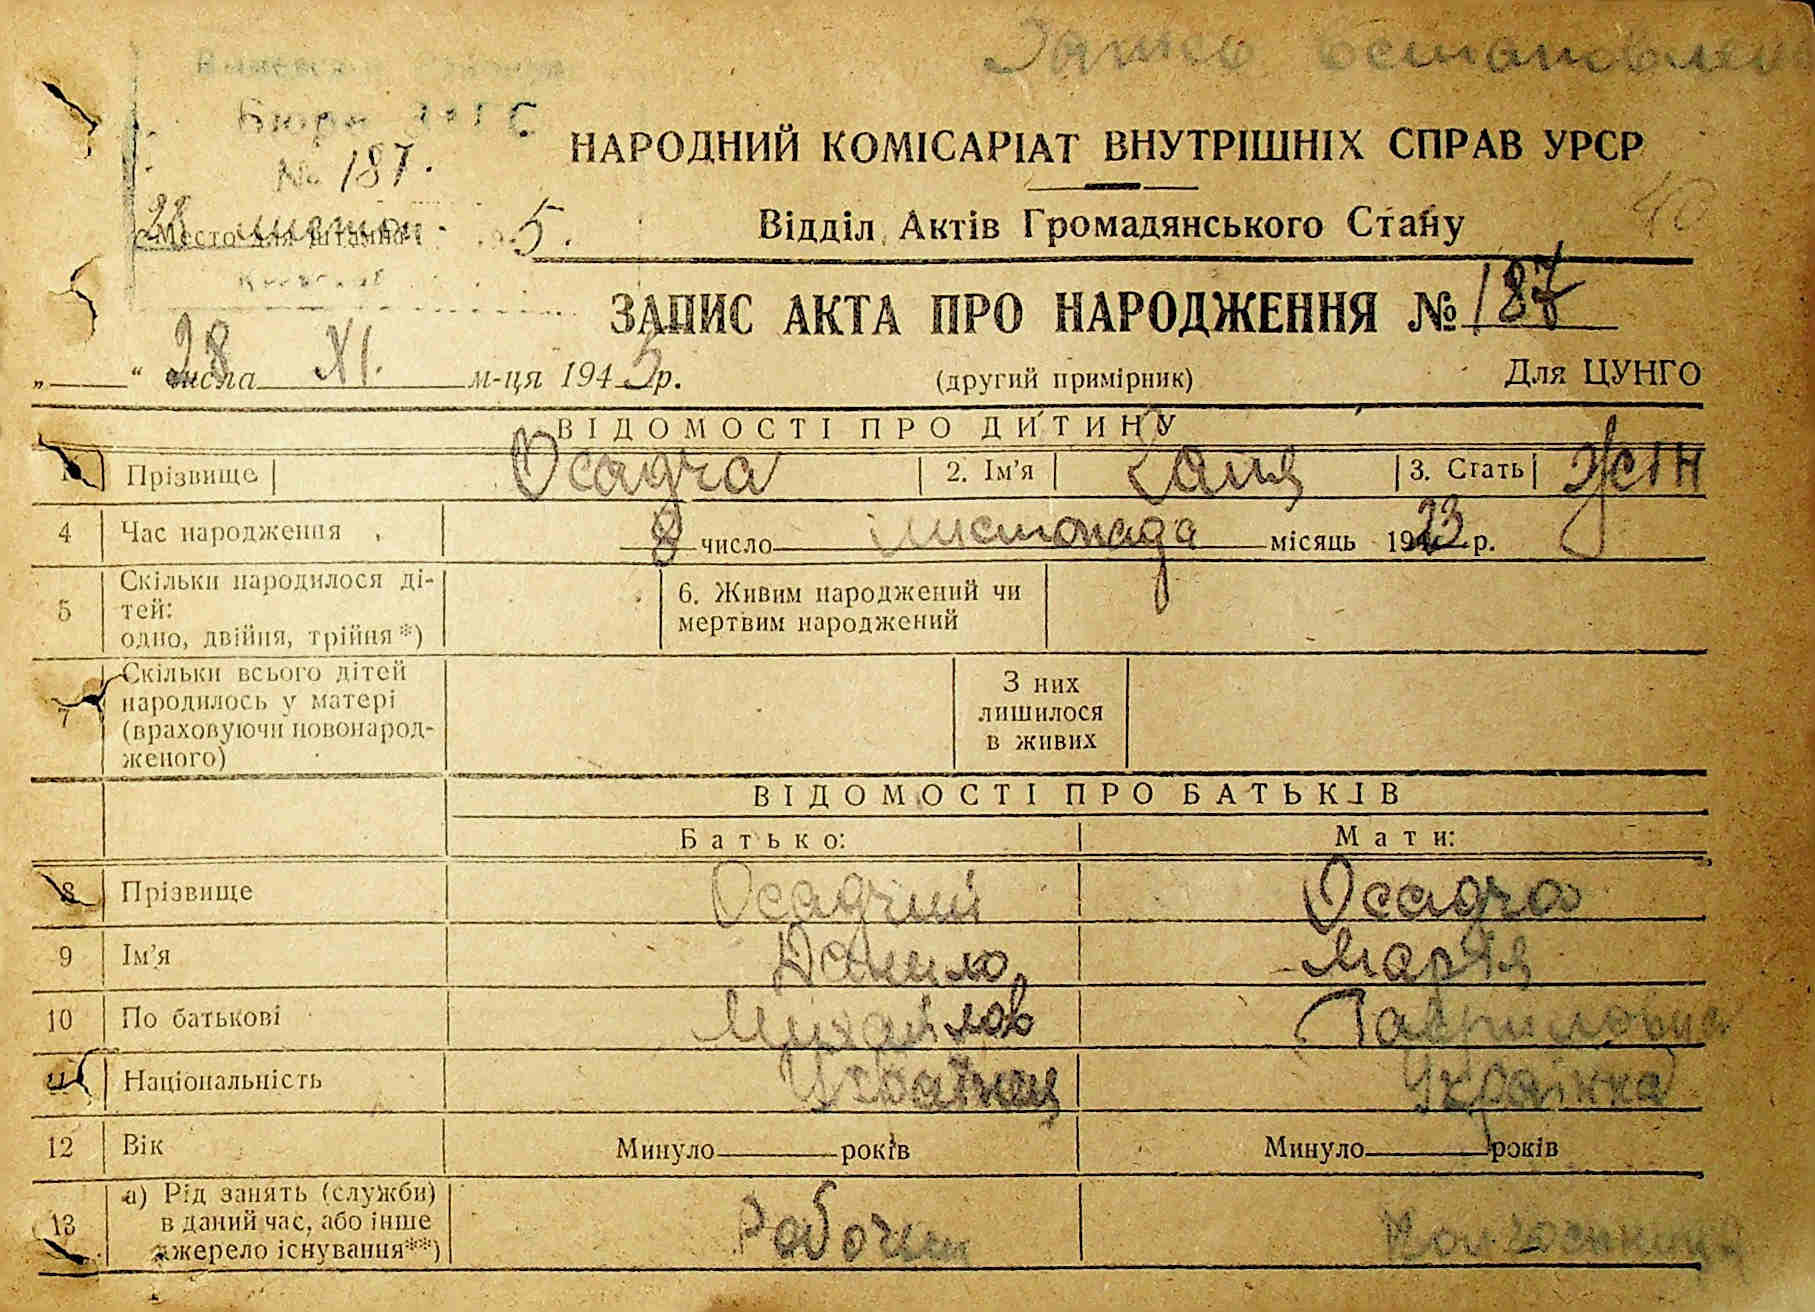 Запись восстановлена
Бюро ЗАГС
№ 187.
28 5.
Место для штампа
НАРОДНИЙ КОМІСАРІАТ ВНУТРІШНІХ СПРАВ УРСР
40
Відділ Актів Громадянського Стану
ЗАПИС АКТА ПРО НАРОДЖЕННЯ № 187
„ “ 28 числа XI. м-ця 1945 р. (другий примірник) Для ЦУНГО
ВІДОМОСТІ ПРО ДИТИНУ
1 Прізвище Осадча 2. Ім’я Ганя 3. Стать жін
4 Час народження 8 число листопада місяць 1923 р.
5 Скільки народилося ді-
тей:
одно, двійня, трійня*)
6. Живим народжений чи
мертвим народжений
7 Скільки всього дітей
народилось у матері
(враховуючи новонарод-
женого)
З них
лишилося
в живих
ВІДОМОСТІ ПРО БАТЬКІВ
Батько: Мати:
8 Прізвище Осадчий Осадча
9 Ім’я Данило Марія
10 По батькові Михайлов Гавриловна
11 Національність Українец Українка
12 Вік Минуло років Минуло років
13 а) Рід занять (служби)
в даний час, або інше
джерело існування**)
Робочий Колгоспниця